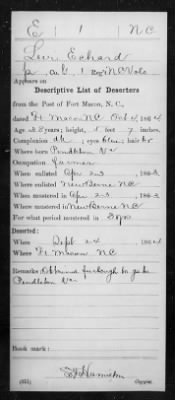 E | 1 | N C
Levi Echard
Co. G, 1 Reg NC Vols
Appears on
Descriptive List of Deserters
from the Post of Fort Macon, N. C.,
dated Ft Macon NC Oct 4, 1864
Age 28 years; height, 5 feet 7 inches,
Complexion dk; eyes blue; hair br
Where born Pendleton Va
Occupation Farmer
When enlisted Apr 23, 1863
Where enlisted New Berne NC
When mustered in Apr 23, 1863
Where mustered in New Berne NC
For what period mustered in 3 yrs
Deserted:
When Sept 24, 1864
Where Ft Macon NC
Remarks: Obtained furlough to go to
Pendleton Va
Book mark:
Copyist.